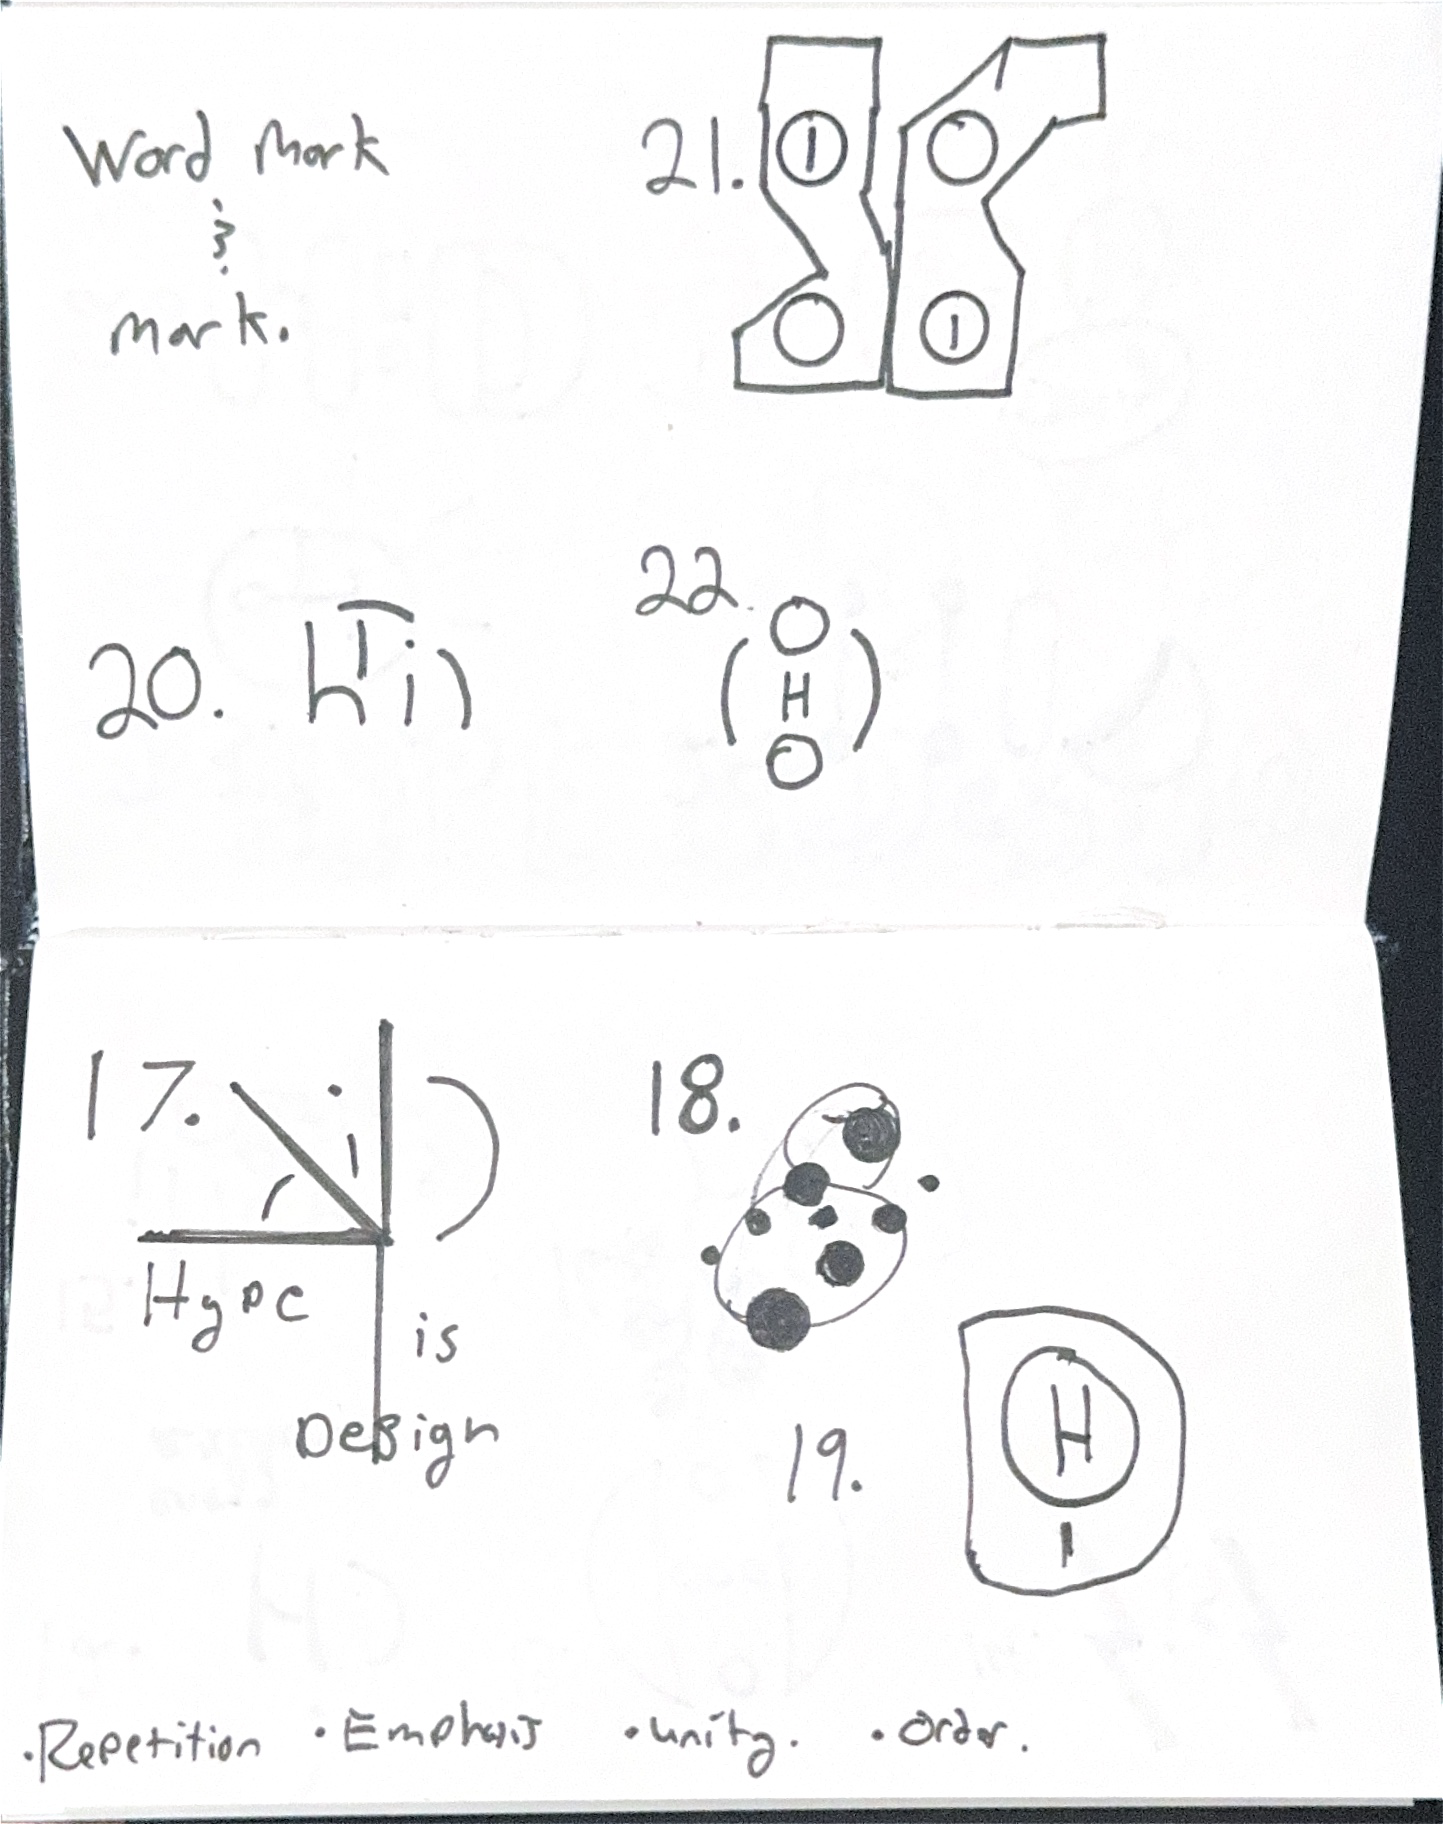 Word Mark
&
Mark.
21.
1
1
20. hTi)
22.
O
(H)
O
17.
18.
Hype
is
Design
19.
H
1
• Repetition • Emphasis • unity. • Order.